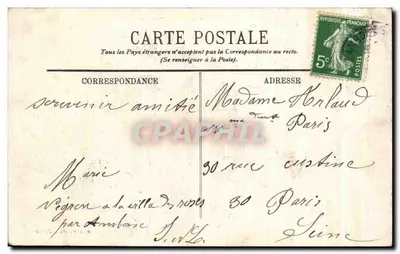 CARTE POSTALE
Tous les Pays étrangers n'acceptent pas la Correspondance au recto.
(Se renseigner à la Poste).
CORRESPONDANCE
ADRESSE
souvenir amitié
Marie
Végron a la villa des roses
par Amboise
I. et L.
Madame Arlaud
Paris
30 rue custine
30 Paris
Seine
REPUBLIQUE FRANÇAISE
5c
POSTES
CPARAMA